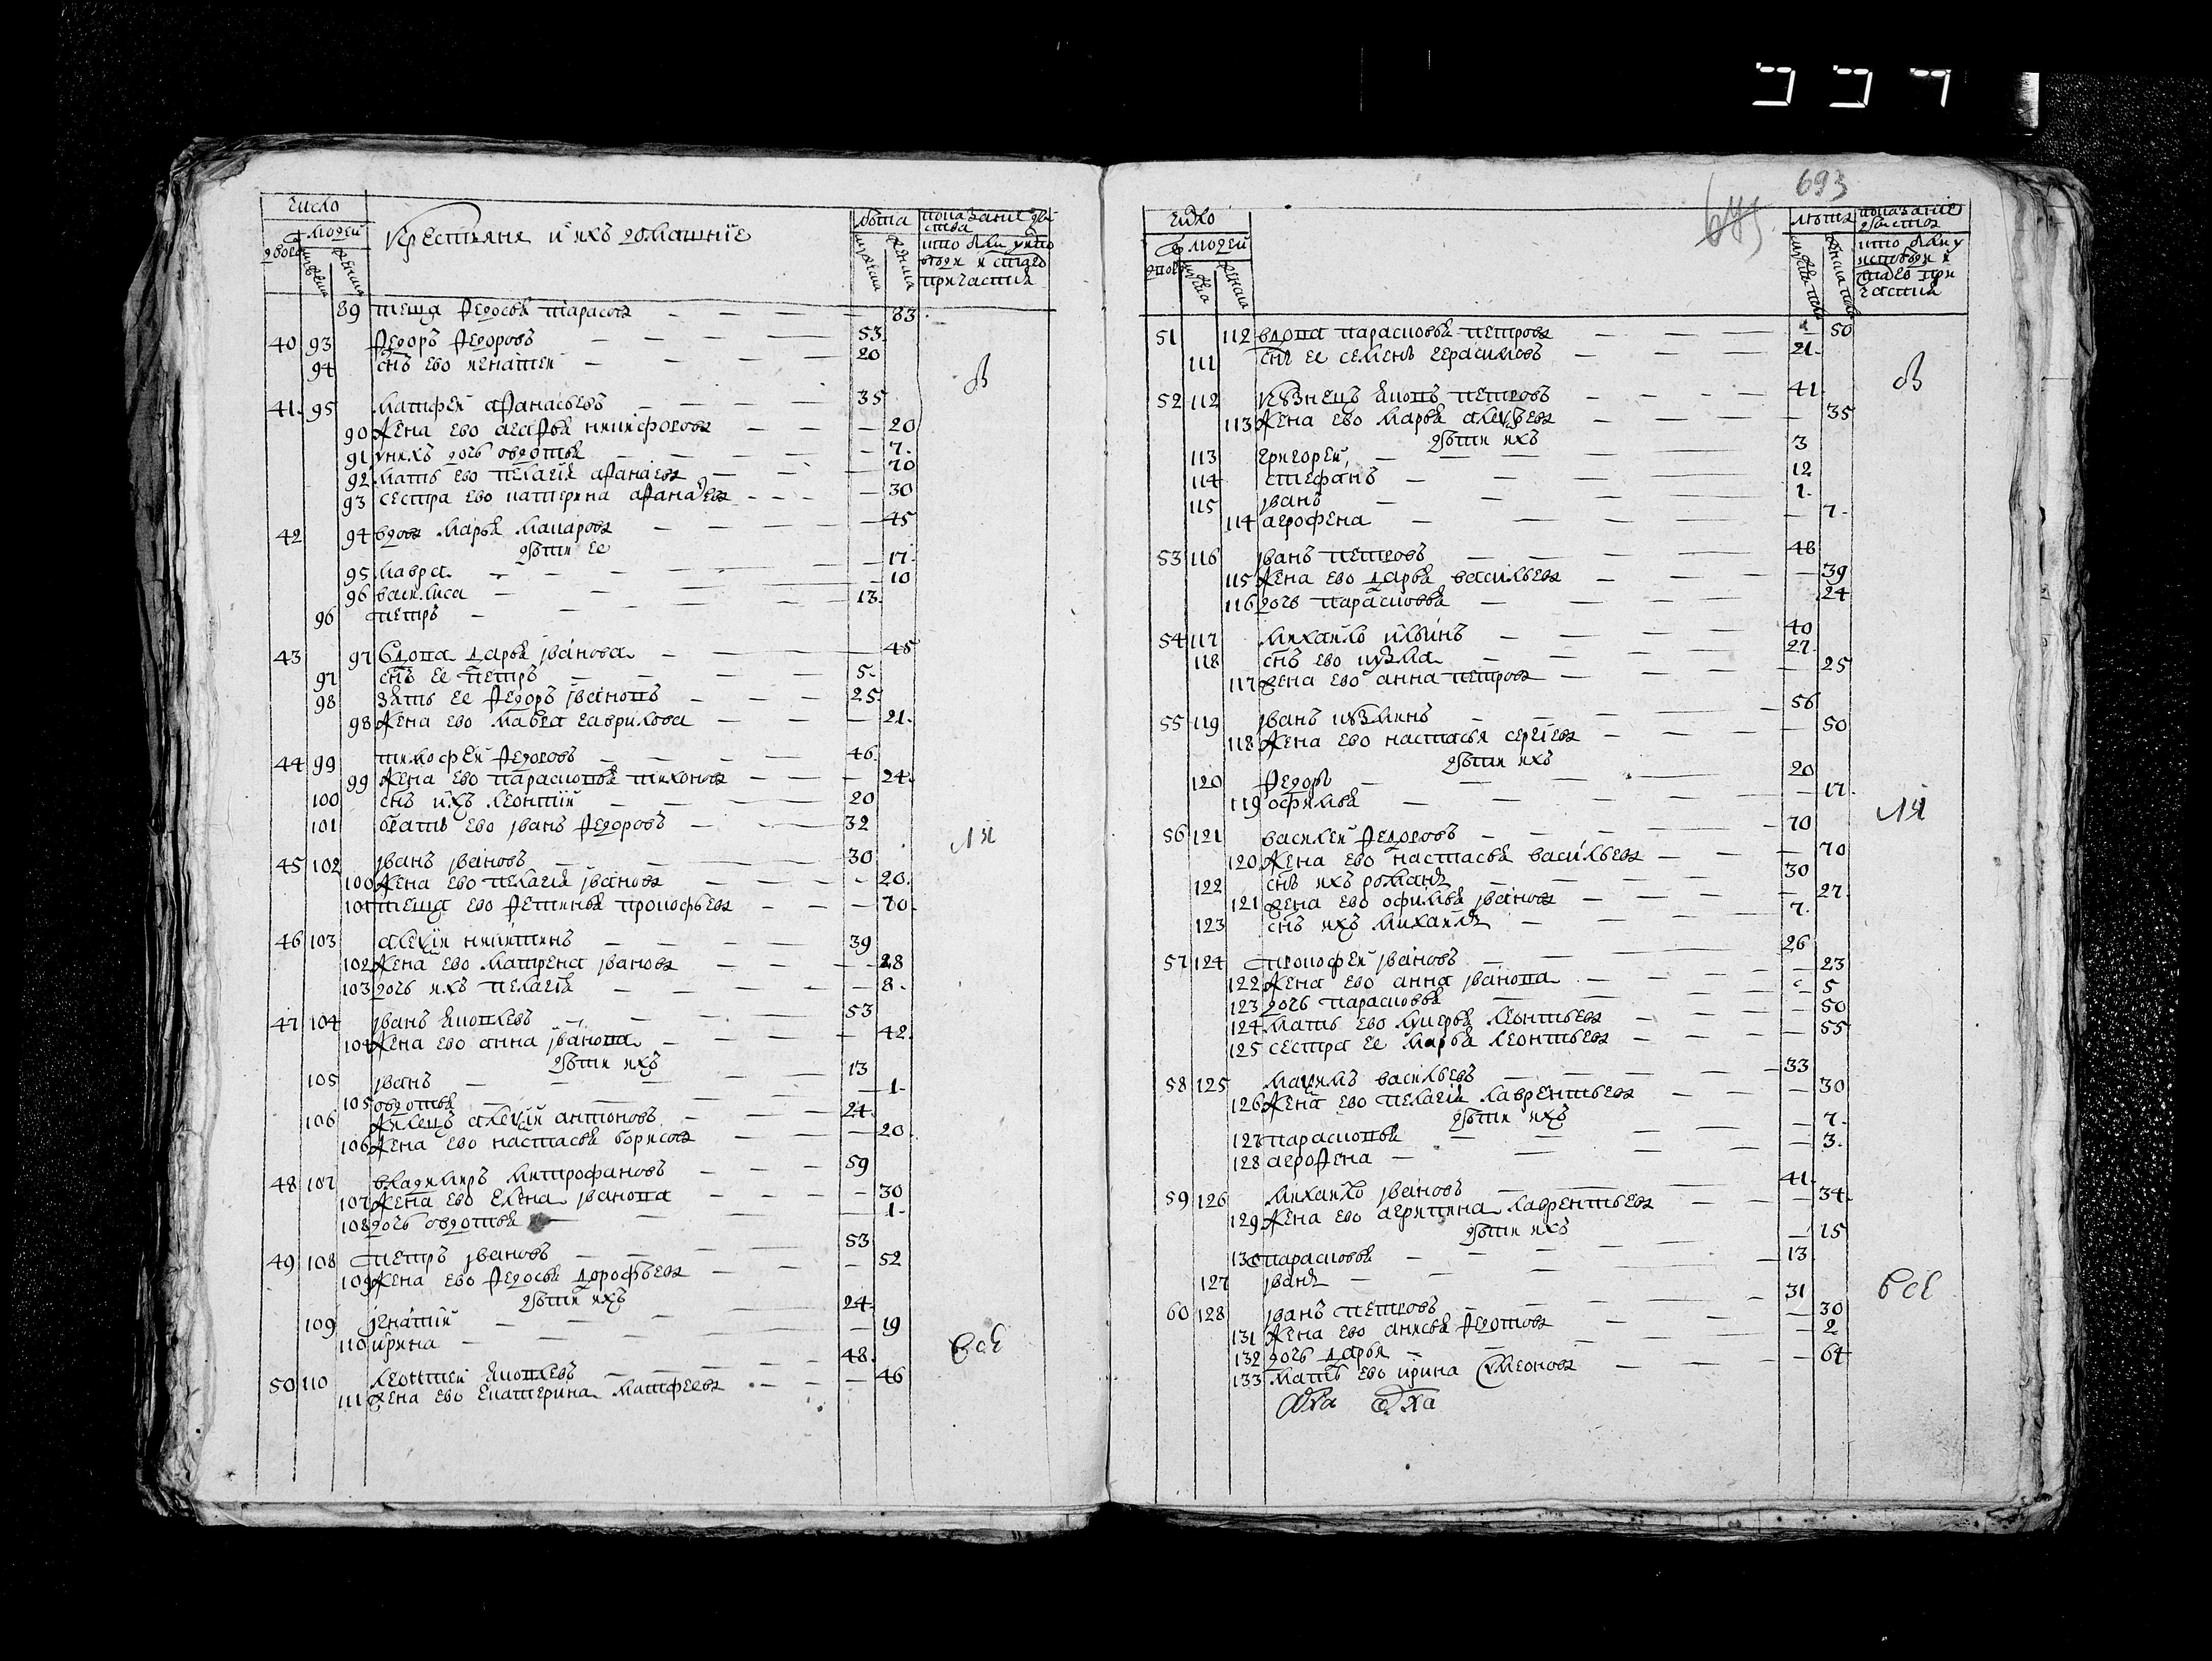 число
людей
дворо
мужеска
женска
крестьяня и ихъ домашніе
лѣта
мужеска
женска
показаніе дѣйства
кто былъ у исповѣди и с̃таго причастия
89 теща федосья тарасова — 83
40 93 федоръ федоровъ — 53
94 снъ ево игнатей — 20
41 95 матфей афанасьевъ — 35
90 жена ево агафья никифорова — 20
91 у нихъ дочь овдотья — 7
92 мать ево пелагия афанасева — 70
93 сестра ево катерина афанасева — 30
42 94 вдова марья макарова — 45
дѣти ее
95 мавра — 17
96 василиса — 10
96 петръ — 13
43 97 вдова дарья іванова — 45
97 снъ ее петръ — 5
98 зять ее федоръ івановъ — 25
98 жена ево мавра гаврилова — 21
44 99 тимофей федоровъ — 46
99 жена ево парасковья тихонова — 24
100 снъ ихъ леонтий — 20
101 братъ ево іванъ федоровъ — 32
45 102 іванъ івановъ — 30
100 жена ево пелагия іванова — 20
101 теща ево фетинья прокофьева — 70
46 103 алексiй никитинъ — 39
102 жена ево матрена іванова — 28
103 дочь ихъ пелагия — 8
47 104 іванъ яковлевъ — 53
104 жена ево анна іванова — 42
дѣти ихъ
105 іванъ — 13
105 овдотья — 1
106 жилецъ алексiй антоновъ — 24
106 жена ево настасья борисова — 20
48 107 владимиръ митрофановъ — 59
107 жена ево елена іванова — 30
108 дочь овдотья — 1
49 108 петръ івановъ — 53
109 жена ево федосья дорофѣева — 52
дѣти ихъ
109 ігнатий — 24
110 ирина — 19
50 110 леонтей яковлевъ — 48
111 жена ево екатерина матфеева — 46
в
ся
всѣ
693
число
людей
дворо
мужеска
женска
лѣта
мужеска
женска
показаніе дѣйства
кто былъ у исповѣди и с̃таго причастия
51 112 вдова парасковья петрова — 50
111 снъ ее семенъ герасимовъ — 21
52 112 кузнецъ яковъ петровъ — 41
113 жена ево марья алексѣева — 35
дѣти ихъ
113 григорей — 3
114 стефанъ — 12
115 іванъ — 1
114 агрофена — 7
53 116 іванъ петровъ — 48
115 жена ево дарья васильева — 39
116 дочь парасковья — 24
54 117 михаило ильинъ — 40
118 снъ ево кузма — 27
117 жена ево анна петрова — 25
55 119 іванъ кузминъ — 56
118 жена ево настасья сергіева — 50
дѣти ихъ
120 федоръ — 20
119 офимья — 17
56 121 василей федоровъ — 70
120 жена ево настасья васильева — 70
122 снъ ихъ романъ — 30
121 жена ево офимья іванова — 27
123 снъ ихъ михаилъ — 7
57 124 прокофей івановъ — 26
122 жена ево анна іванова — 23
123 дочь парасковья — 5
124 мать ево лукерья леонтьева — 50
125 сестра ее марья леонтьева — 55
58 125 максимъ васильевъ — 33
126 жена ево пелагия лаврентьева — 30
дѣти ихъ
127 парасковья — 7
128 агрофена — 3
59 126 михаило івановъ — 41
129 жена ево агрипина лаврентьева — 34
дѣти ихъ
130 парасковья — 15
127 іванъ — 13
60 128 іванъ петровъ — 31
131 жена ево анисья федотова — 30
132 дочь дарья — 2
133 мать ево ирина симеонова — 64
в
всѣ